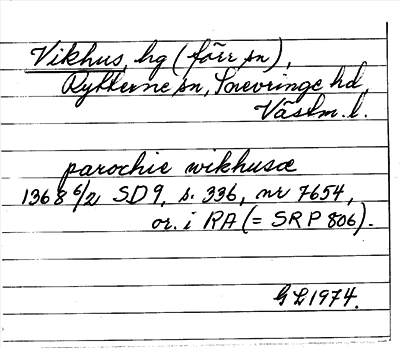 Vikhus, hg (förr sn),
Rytterne sn, Snevringe hd,
Västm. l.
parochie wikhusæ
1368 6/2 SD 9, s. 336, nr 7654,
or. i RA (= SRP 806).
GL 1974.